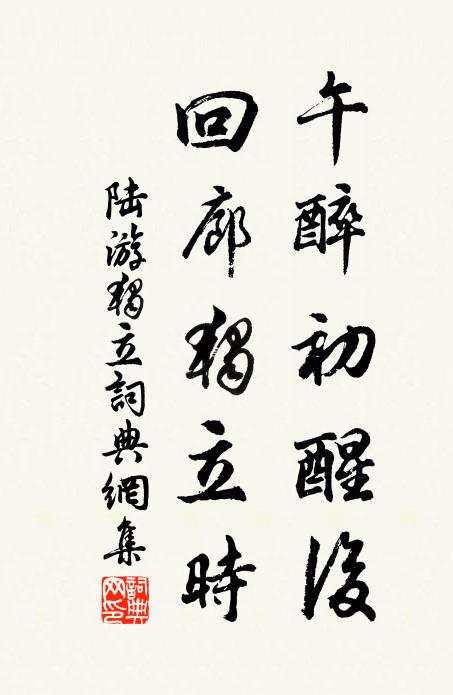 午醉初醒後
回廊獨立時
陆游獨立詞典網集
詞典网印